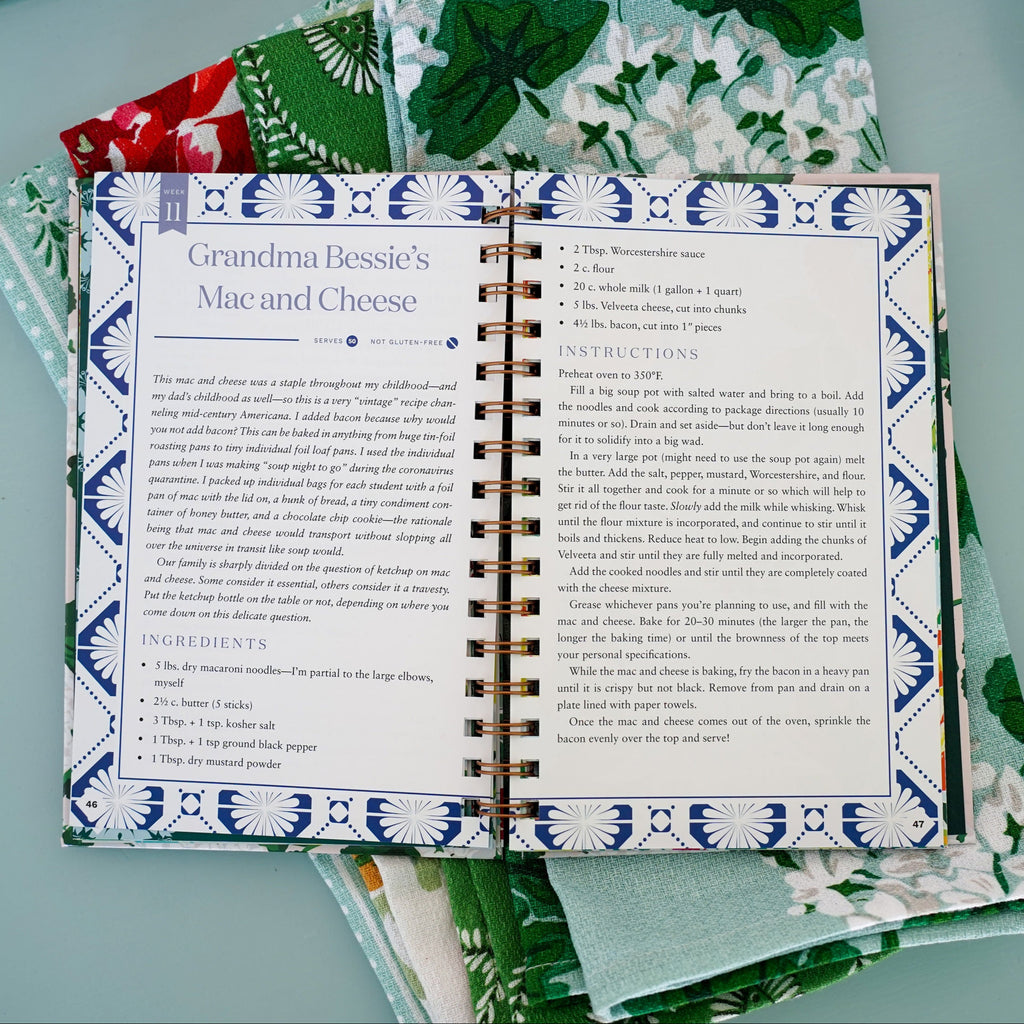 WEEK
11
Grandma Bessie's
Mac and Cheese
SERVES 50 NOT GLUTEN-FREE
This mac and cheese was a staple throughout my childhood—and
my dad's childhood as well—so this is a very "vintage" recipe chan-
neling mid-century Americana. I added bacon because why would
you not add bacon? This can be baked in anything from huge tin-foil
roasting pans to tiny individual foil loaf pans. I used the individual
pans when I was making "soup night to go" during the coronavirus
quarantine. I packed up individual bags for each student with a foil
pan of mac with the lid on, a hunk of bread, a tiny condiment con-
tainer of honey butter, and a chocolate chip cookie—the rationale
being that mac and cheese would transport without slopping all
over the universe in transit like soup would.
Our family is sharply divided on the question of ketchup on mac
and cheese. Some consider it essential, others consider it a travesty.
Put the ketchup bottle on the table or not, depending on where you
come down on this delicate question.
INGREDIENTS
• 5 lbs. dry macaroni noodles—I'm partial to the large elbows,
myself
• 2½ c. butter (5 sticks)
• 3 Tbsp. + 1 tsp. kosher salt
• 1 Tbsp. + 1 tsp ground black pepper
• 1 Tbsp. dry mustard powder
46
• 2 Tbsp. Worcestershire sauce
• 2 c. flour
• 20 c. whole milk (1 gallon + 1 quart)
• 5 lbs. Velveeta cheese, cut into chunks
• 4½ lbs. bacon, cut into 1" pieces
INSTRUCTIONS
Preheat oven to 350°F.
Fill a big soup pot with salted water and bring to a boil. Add
the noodles and cook according to package directions (usually 10
minutes or so). Drain and set aside—but don't leave it long enough
for it to solidify into a big wad.
In a very large pot (might need to use the soup pot again) melt
the butter. Add the salt, pepper, mustard, Worcestershire, and flour.
Stir it all together and cook for a minute or so which will help to
get rid of the flour taste. Slowly add the milk while whisking. Whisk
until the flour mixture is incorporated, and continue to stir until it
boils and thickens. Reduce heat to low. Begin adding the chunks of
Velveeta and stir until they are fully melted and incorporated.
Add the cooked noodles and stir until they are completely coated
with the cheese mixture.
Grease whichever pans you're planning to use, and fill with the
mac and cheese. Bake for 20–30 minutes (the larger the pan, the
longer the baking time) or until the brownness of the top meets
your personal specifications.
While the mac and cheese is baking, fry the bacon in a heavy pan
until it is crispy but not black. Remove from pan and drain on a
plate lined with paper towels.
Once the mac and cheese comes out of the oven, sprinkle the
bacon evenly over the top and serve!
47